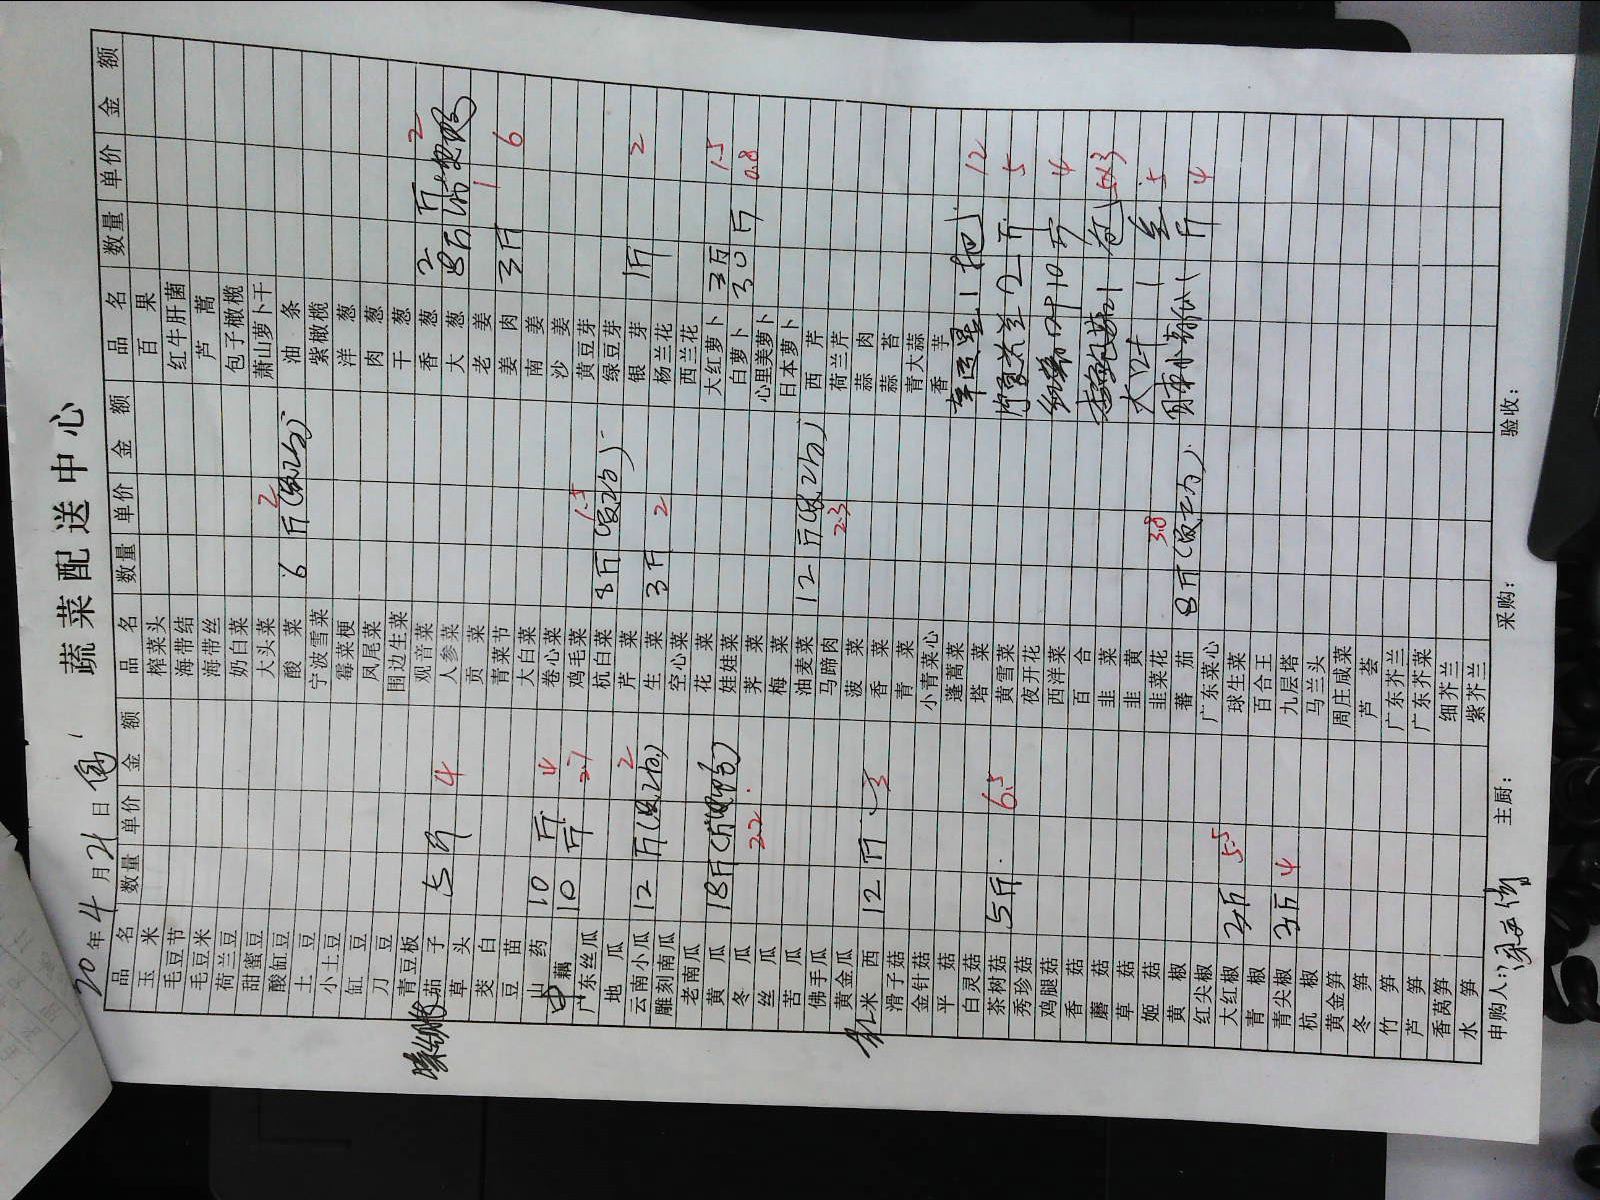 蔬菜配送中心
20 年 4 月 21 日
品名 数量 单价 金额
玉米
毛豆节
毛豆米
荷兰豆
甜蜜豆
酸缸豆
土豆
小土豆
缸豆
刀豆
青豆板
茄子 5斤 4
草头
茭白
豆苗
山药 10斤 4
藕 10斤 2.7
广东丝瓜
地瓜
云南小瓜 12斤 2
雕刻南瓜
老南瓜
黄瓜 18斤 2.2
冬瓜
丝瓜
苦瓜
佛手瓜
黄金瓜
米西 12斤 3
滑子菇
金针菇
平菇
白灵菇
茶树菇 5斤 6.5
秀珍菇
鸡腿菇
香菇
蘑菇
草菇
姬菇
黄椒
红尖椒
大红椒 3斤 5.5
青椒
青尖椒 3斤 4
杭椒
黄金笋
冬笋
竹笋
芦笋
香莴笋
水笋
品名 数量 单价 金额
榨菜头
海带结
海带丝
奶白菜
大头菜
酸菜 6斤 2
宁波雪菜
霉菜梗
凤尾菜
围边生菜
观音菜
人参菜
贡菜
青菜节
大白菜
卷心菜
鸡毛菜
杭白菜 8斤 1.5
芹菜
生菜 3斤 2
空心菜
花菜
娃娃菜
荠菜
梅菜
油麦菜 12斤 2.3
马蹄肉
菠菜
香菜
青菜
小青菜心
蓬蒿菜
塔菜
黄雪菜
夜开花
西洋菜
百合
韭菜
韭黄
韭菜花
蕃茄 8斤 3.8
广东菜心
球生菜
百合王
九层塔
马兰头
周庄咸菜
芦荟
广东芥兰
广东芥菜
细芥兰
紫芥兰
品名 数量 单价 金额
百果
红牛肝菌
芦蒿
包子橄榄
萧山萝卜干
油条
紫橄榄
洋葱
肉葱
干葱
香葱 2斤 2
大葱 8斤 1
老姜
姜肉 3斤 6
南姜
沙姜
黄豆芽
绿豆芽
银芽 1斤 2
杨兰花
西兰花
大红萝卜 3斤 1.5
白萝卜 30斤 0.8
心里美萝卜
日本萝卜
西芹
荷兰芹
蒜肉
蒜苔
青大蒜
香芋
1把 12
2斤 5
10斤 4
1包
大叶 1 5
1斤 4
申购人:
主厨:
采购:
验收: